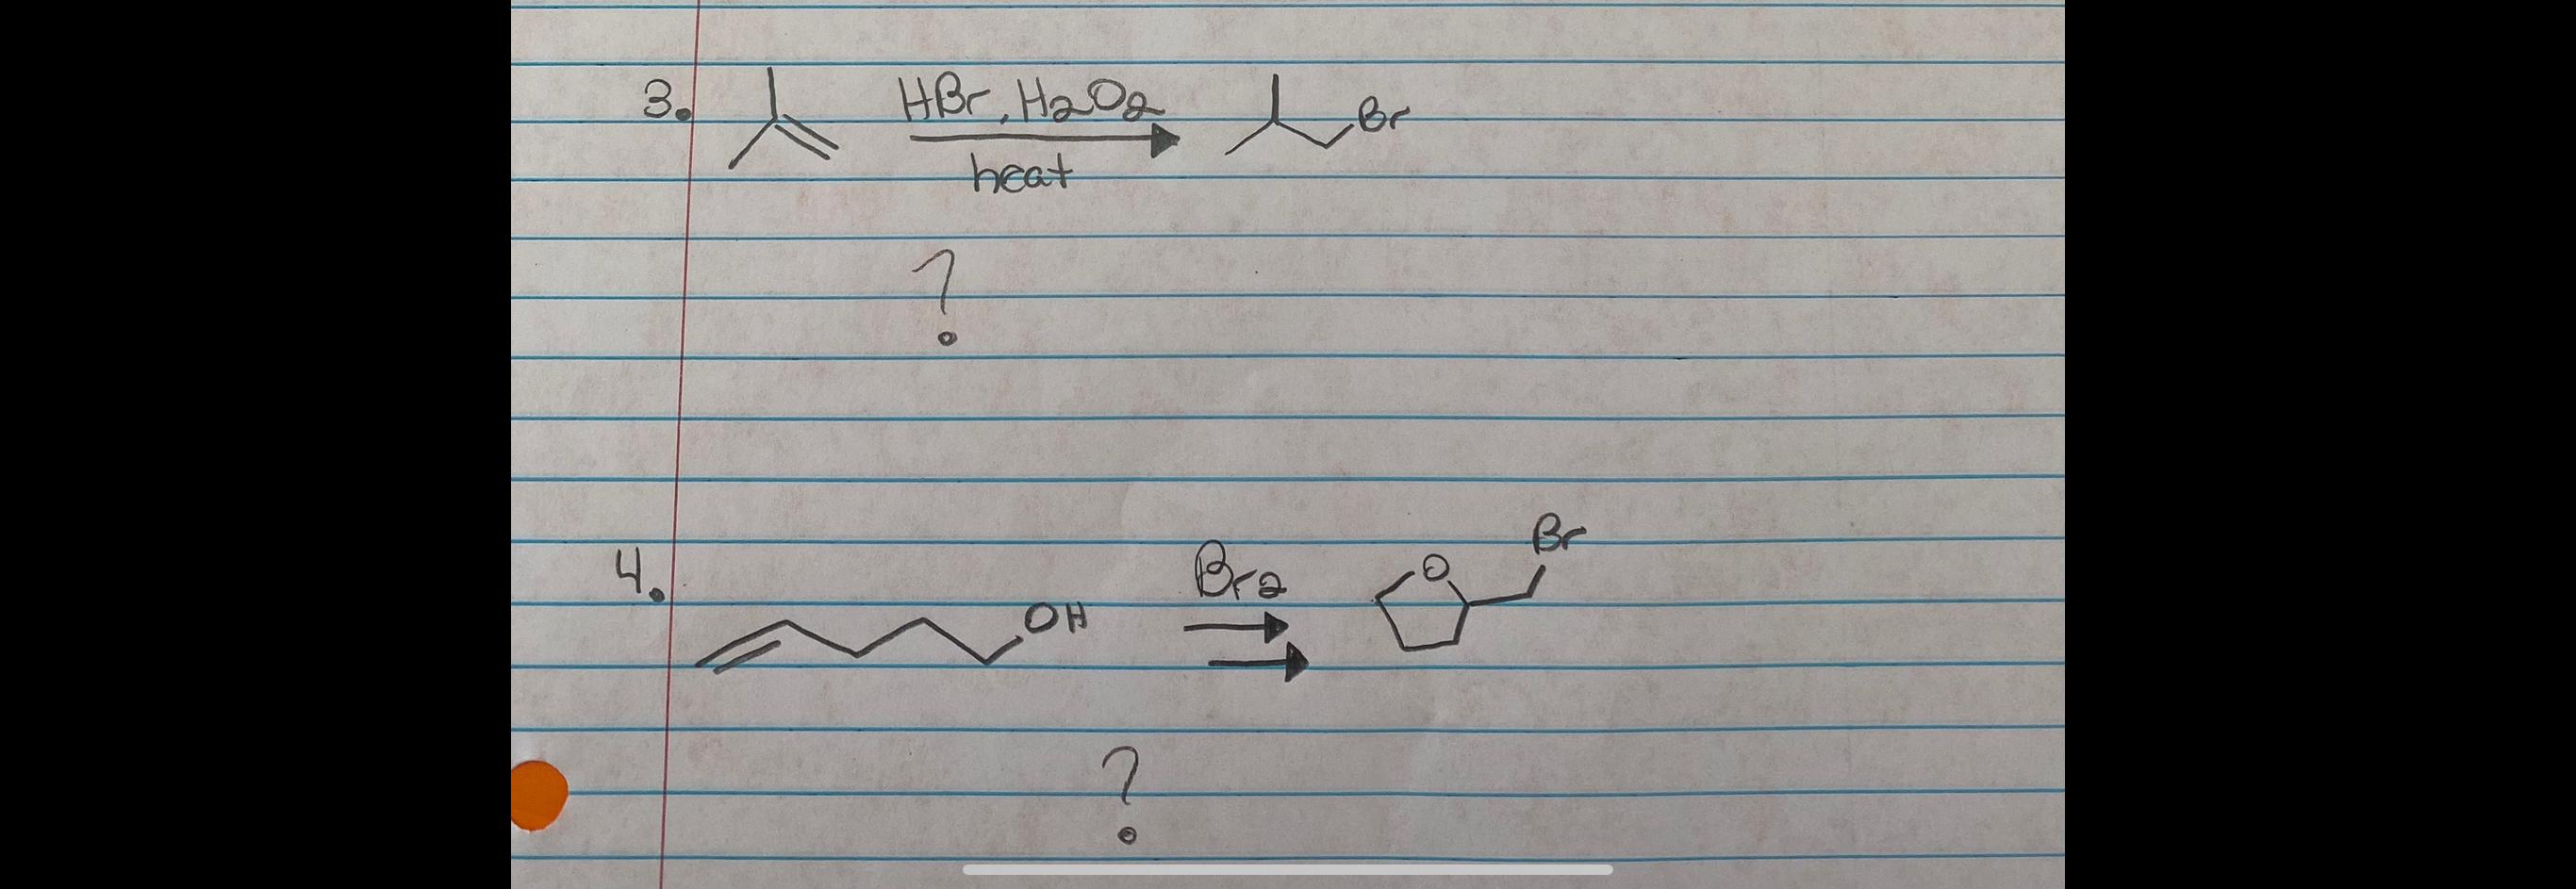 3. HBr, H2O2 Br
heat
?
4. OH Br2 O Br
?